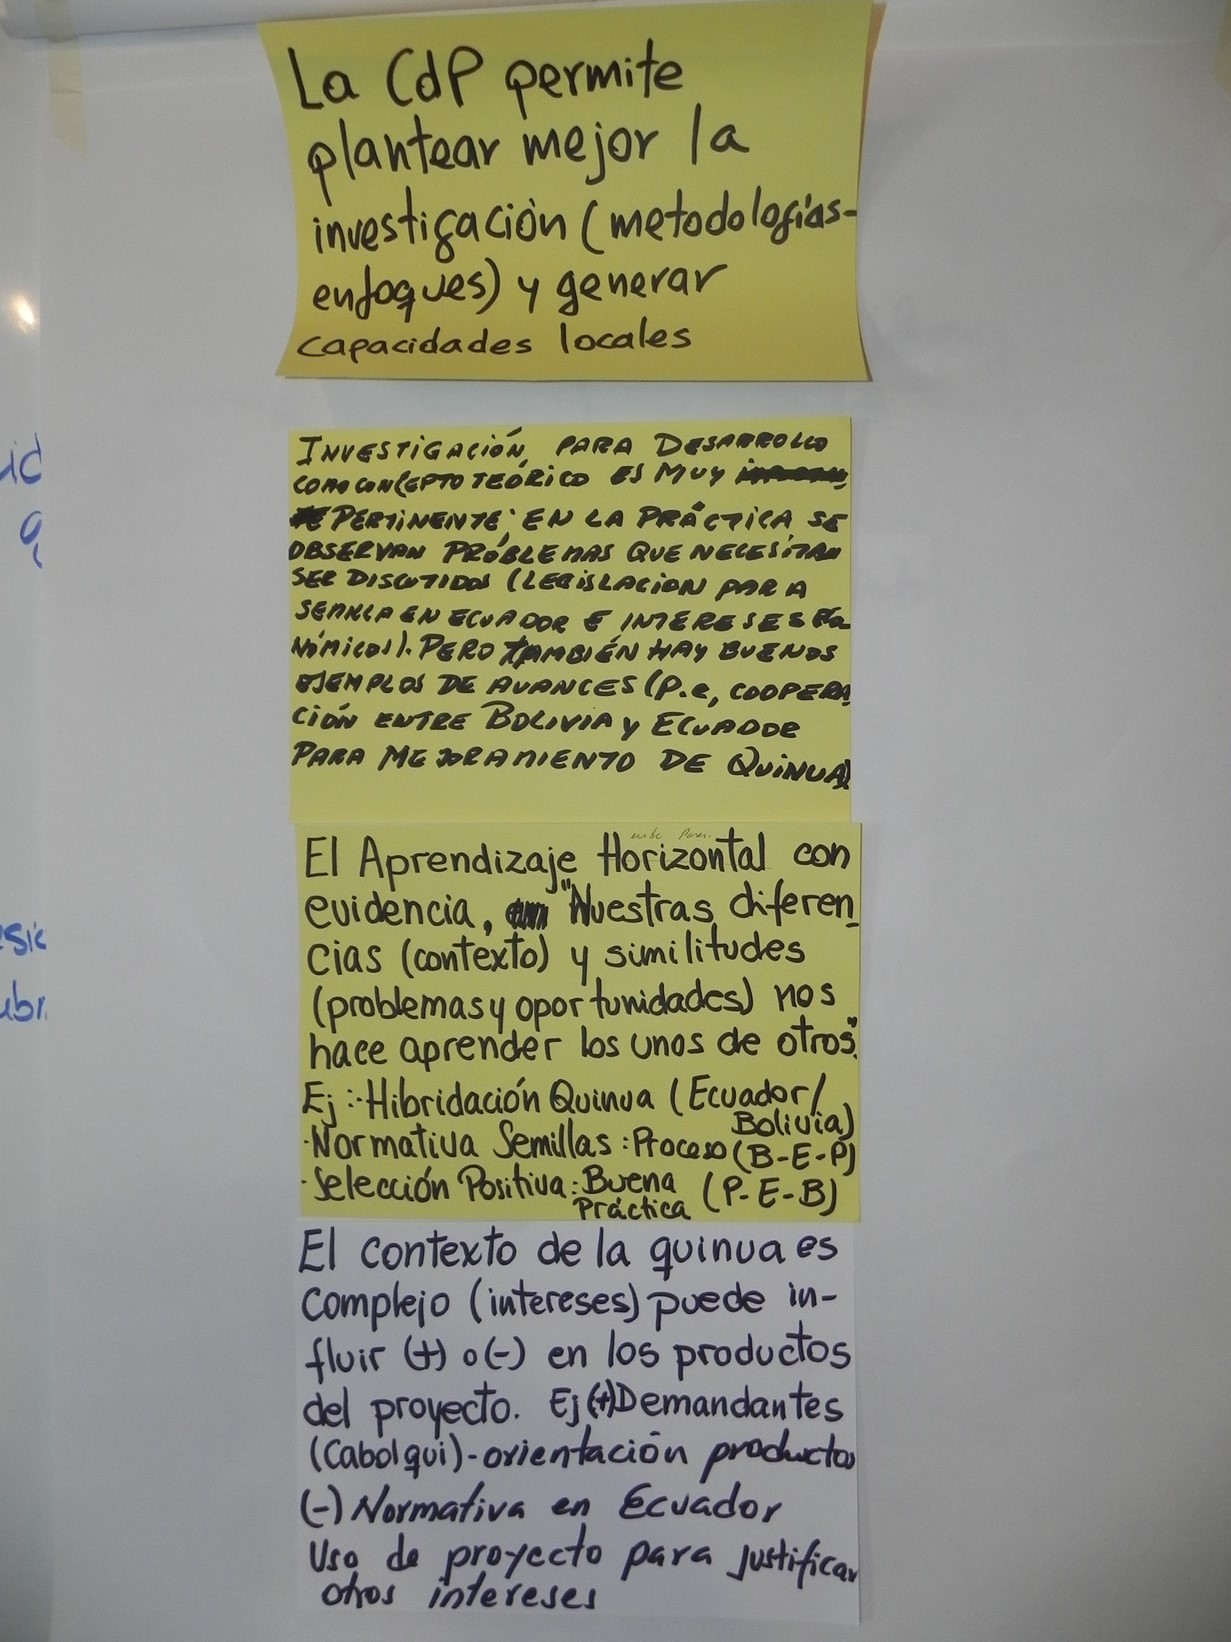 La CdP permite
plantear mejor la
investigación (metodologías-
enfoques) y generar
capacidades locales
INVESTIGACIÓN PARA DESARROLLO
COMO CONCEPTO TEÓRICO ES MUY
PERTINENTE; EN LA PRÁCTICA SE
OBSERVAN PROBLEMAS QUE NECESITAN
SER DISCUTIDOS (LEGISLACION PARA
SEMILLA EN ECUADOR E INTERESES ECO-
NÓMICOS). PERO TAMBIÉN HAY BUENOS
EJEMPLOS DE AVANCES (P.e, COOPERA
CIÓN ENTRE BOLIVIA y ECUADOR
PARA MEJORAMIENTO DE QUINUA)
entre Pares.
El Aprendizaje Horizontal con
evidencia, "Nuestras diferen_
cias (contexto) y similitudes
(problemas y oportunidades) nos
hace aprender los unos de otros".
Ej:·Hibridación Quinua (Ecuador/
Bolivia)
·Normativa Semillas: Proceso (B-E-P)
·Selección Positiva: Buena (P-E-B)
Práctica
El contexto de la quinua es
complejo (intereses) puede in-
fluir (+) o (-) en los productos
del proyecto. Ej (+) Demandantes
(Cabolqui)-orientación productos
(-) Normativa en Ecuador
Uso de proyecto para justificar
otros intereses
id
q
esic
ubr